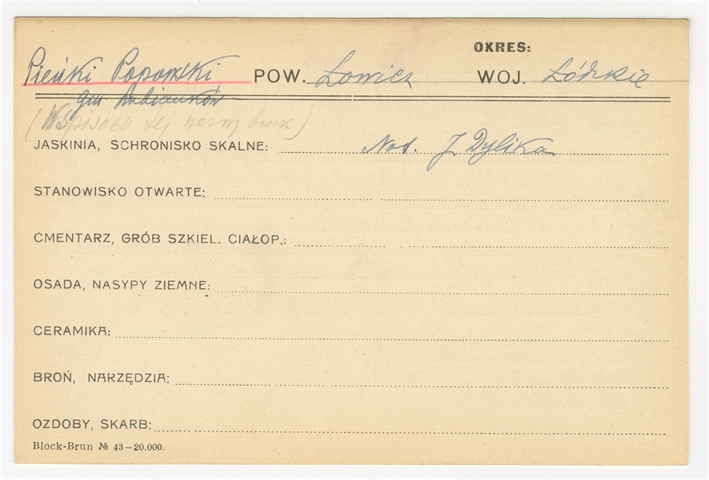 OKRES:
Pieńki Popowski POW. Łowicz WOJ. Łódzkie
gm
(W spisach tej nazwy brak)
JASKINIA, SCHRONISKO SKALNE: Not. J Dylika
STANOWISKO OTWARTE:
CMENTARZ, GRÓB SZKIEL. CIAŁOP.:
OSADA, NASYPY ZIEMNE:
CERAMIKA:
BROŃ, NARZĘDZIA:
OZDOBY, SKARB:
Block-Brun № 43—20.000.